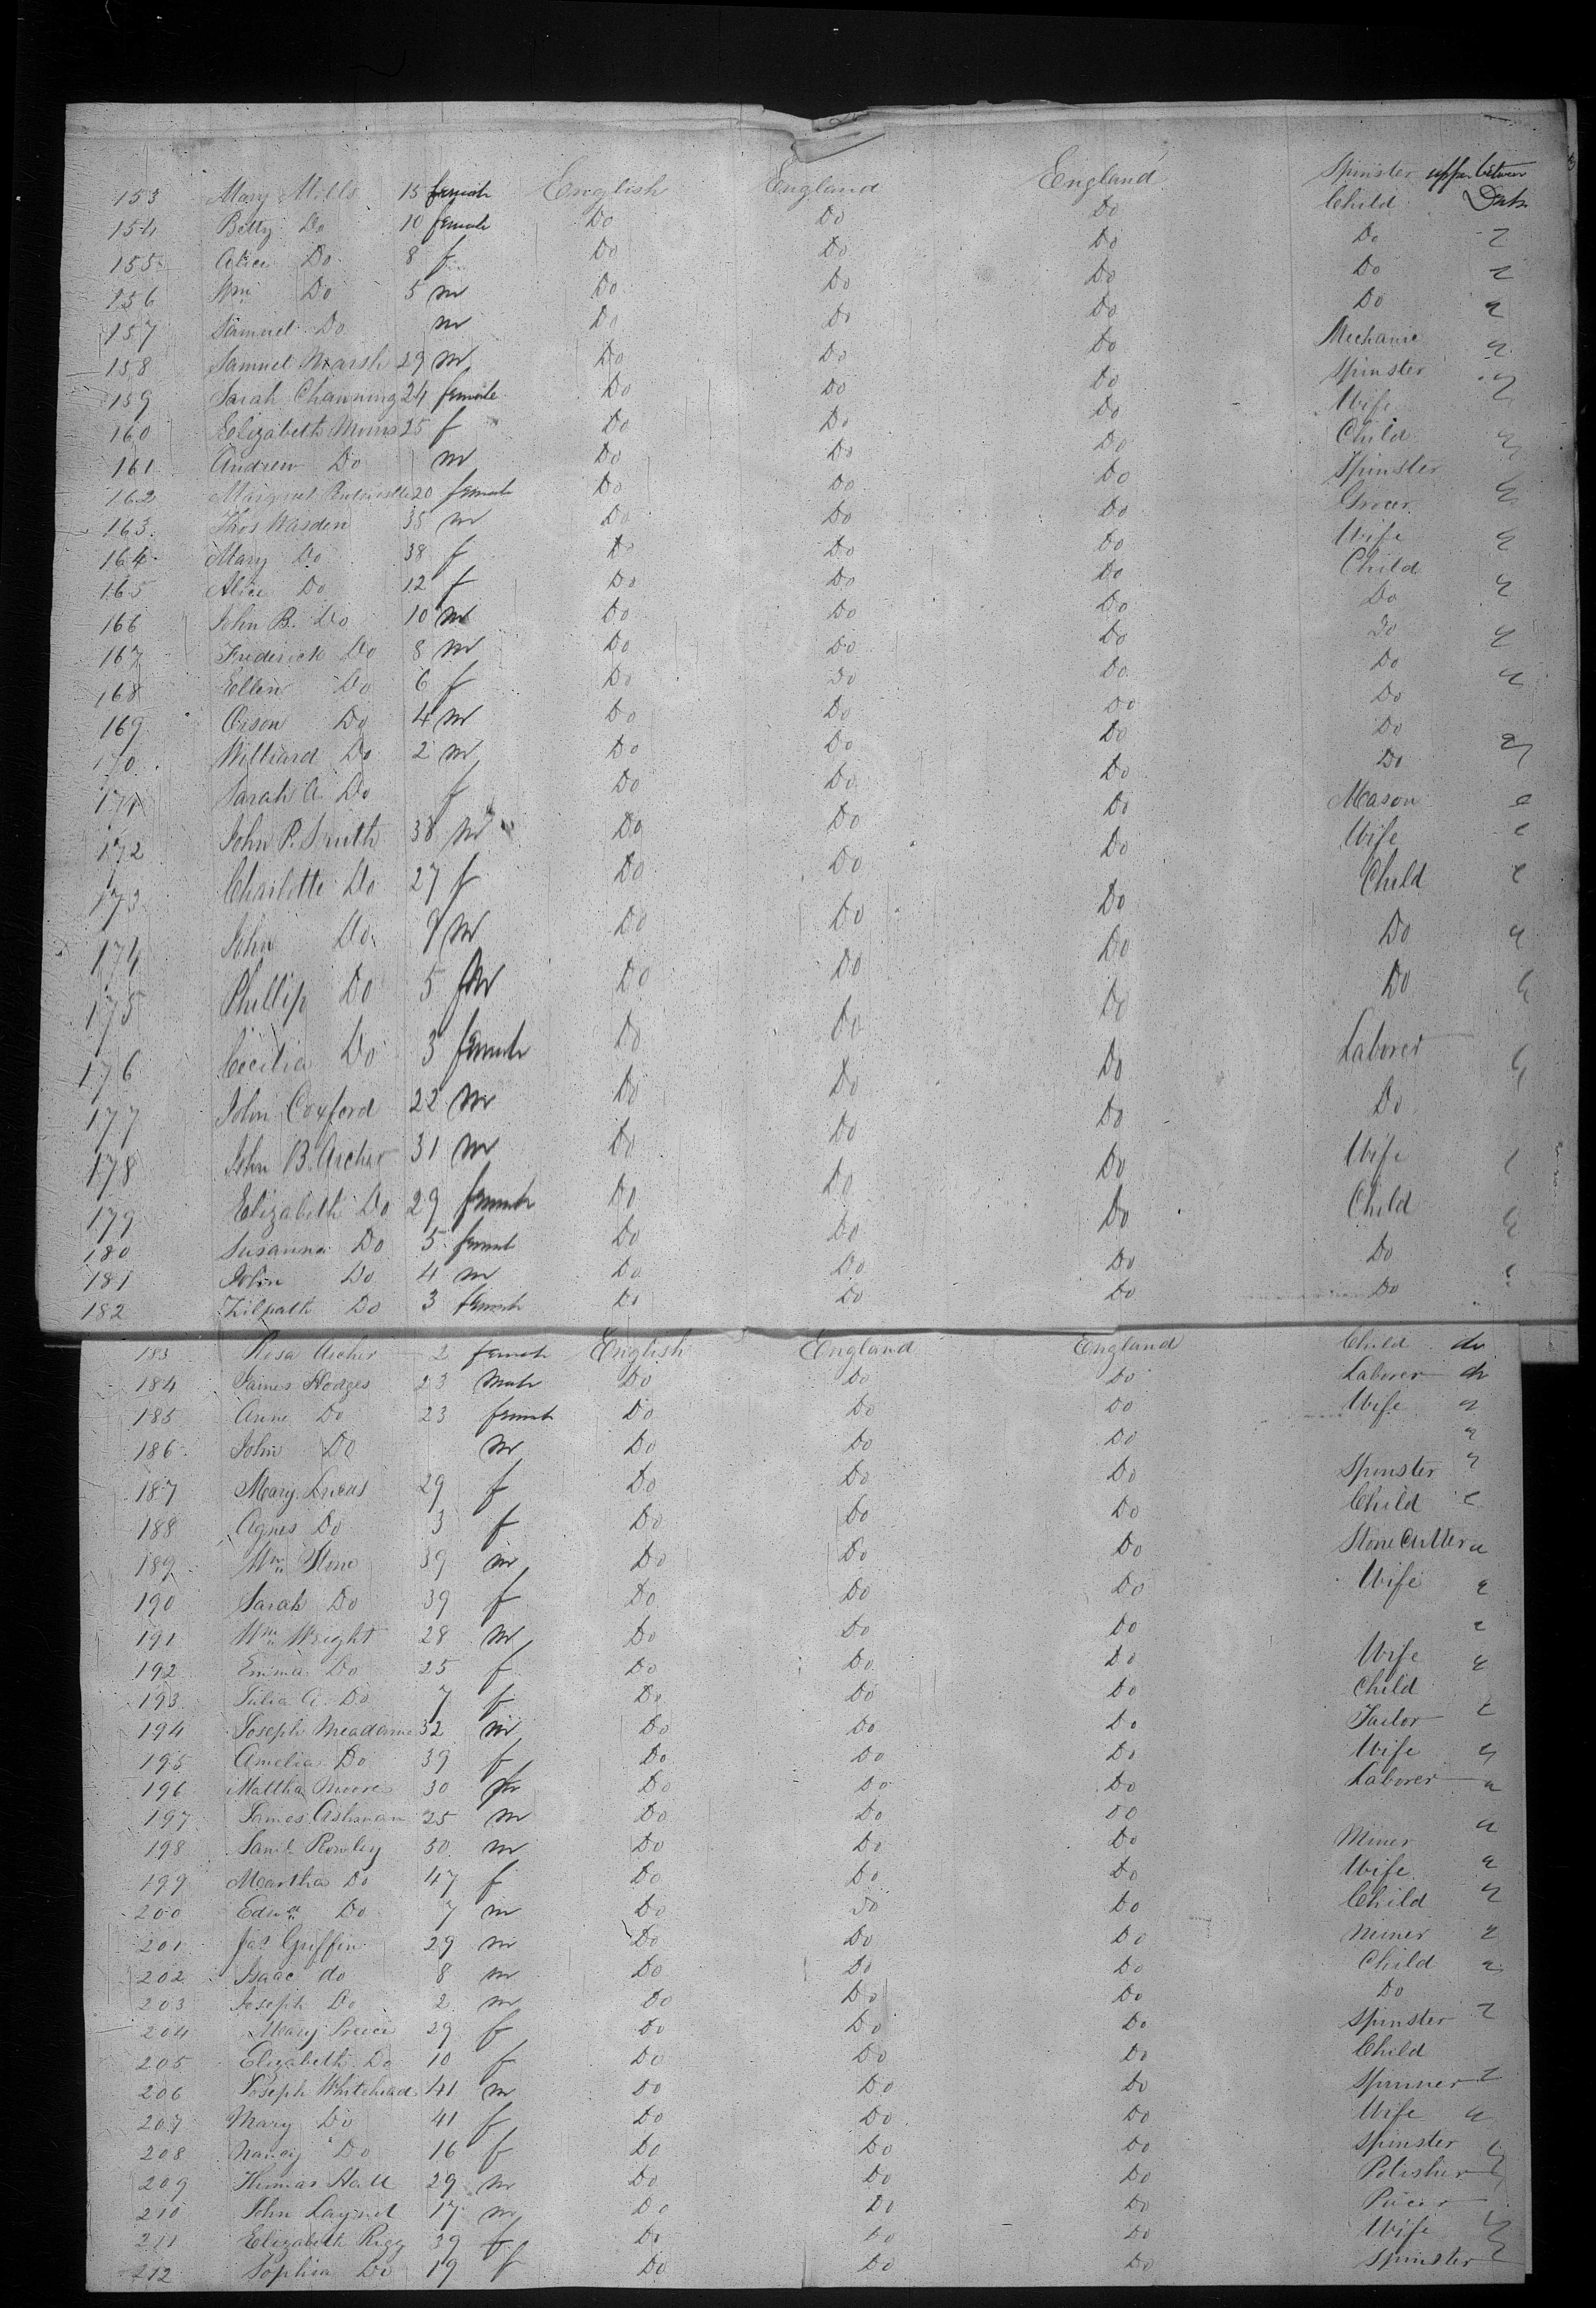 153 Mary Mills 15 female English England England Spinster upper between
154 Betty Do 10 female Do Do Do Child Decks
155 Alice Do 8 f Do Do Do Do
156 Wm Do 5 m Do Do Do Do
157 Samuel Do m Do Do Do Do
158 Samuel Marsh 29 m Do Do Do Mechanic
159 Sarah Channing 24 female Do Do Do Spinster
160 Elizabeth 25 f Do Do Do Wife
161 Andrew Do m Do Do Do Child
162 Margret 20 female Do Do Do Spinster
163 Thos Wasden 38 m Do Do Do Grocer
164 Mary Do 38 f Do Do Do Wife
165 Alice Do 12 f Do Do Do Child
166 John B. Do 10 m Do Do Do Do
167 Frederick Do 8 m Do Do Do Do
168 Ellen Do 6 f Do Do Do Do
169 Orson Do 4 m Do Do Do Do
170 Williard Do 2 m Do Do Do Do
171 Sarah A. Do f Do Do Do Do
172 John P. Smith 38 m Do Do Do Mason
173 Charlotte Do 27 f Do Do Do Wife
174 John Do 9 m Do Do Do Child
175 Phillip Do 5 m Do Do Do Do
176 Cecilia Do 3 female Do Do Do Do
177 John Coxford 22 m Do Do Do Laborer
178 John B. Archer 31 m Do Do Do Do
179 Elizabeth Do 29 female Do Do Do Wife
180 Susanna Do 5 female Do Do Do Child
181 John Do 4 m Do Do Do Do
182 Zilpath Do 3 female Do Do Do Do
183 Rosa Archer 2 female English England England Child do
184 James Hodges 23 male Do Do Do Laborer do
185 Anne Do 23 female Do Do Do Wife
186 John Do m Do Do Do
187 Mary Lucas 29 f Do Do Do Spinster
188 Agnes Do 3 f Do Do Do Child
189 Wm Stone 39 m Do Do Do Stone Cutter
190 Sarah Do 39 f Do Do Do Wife
191 Wm Wright 28 m Do Do Do
192 Emma Do 25 f Do Do Do Wife
193 Julia A. Do 7 f Do Do Do Child
194 Joseph Meadams 32 m Do Do Do Tailor
195 Amelia Do 39 f Do Do Do Wife
196 Moore 30 m Do Do Do Laborer
197 James Ashman 25 m Do Do Do
198 Saml Rowley 50 m Do Do Do Miner
199 Martha Do 47 f Do Do Do Wife
200 Edwd Do 7 m Do Do Do Child
201 Jas Griffin 29 m Do Do Do Miner
202 Isaac do 8 m Do Do Do Child
203 Joseph Do 2 m Do Do Do Do
204 Mary Preece 29 f Do Do Do Spinster
205 Elizabeth Do 10 f Do Do Do Child
206 Joseph Whitehead 41 m Do Do Do Spinner
207 Mary Do 41 f Do Do Do Wife
208 Nancy Do 16 f Do Do Do Spinster
209 Thomas Hall 29 m Do Do Do Polisher
210 John 17 m Do Do Do
211 Elizabeth Rigg 39 f Do Do Do Wife
212 Sophia Do 19 f Do Do Do Spinster